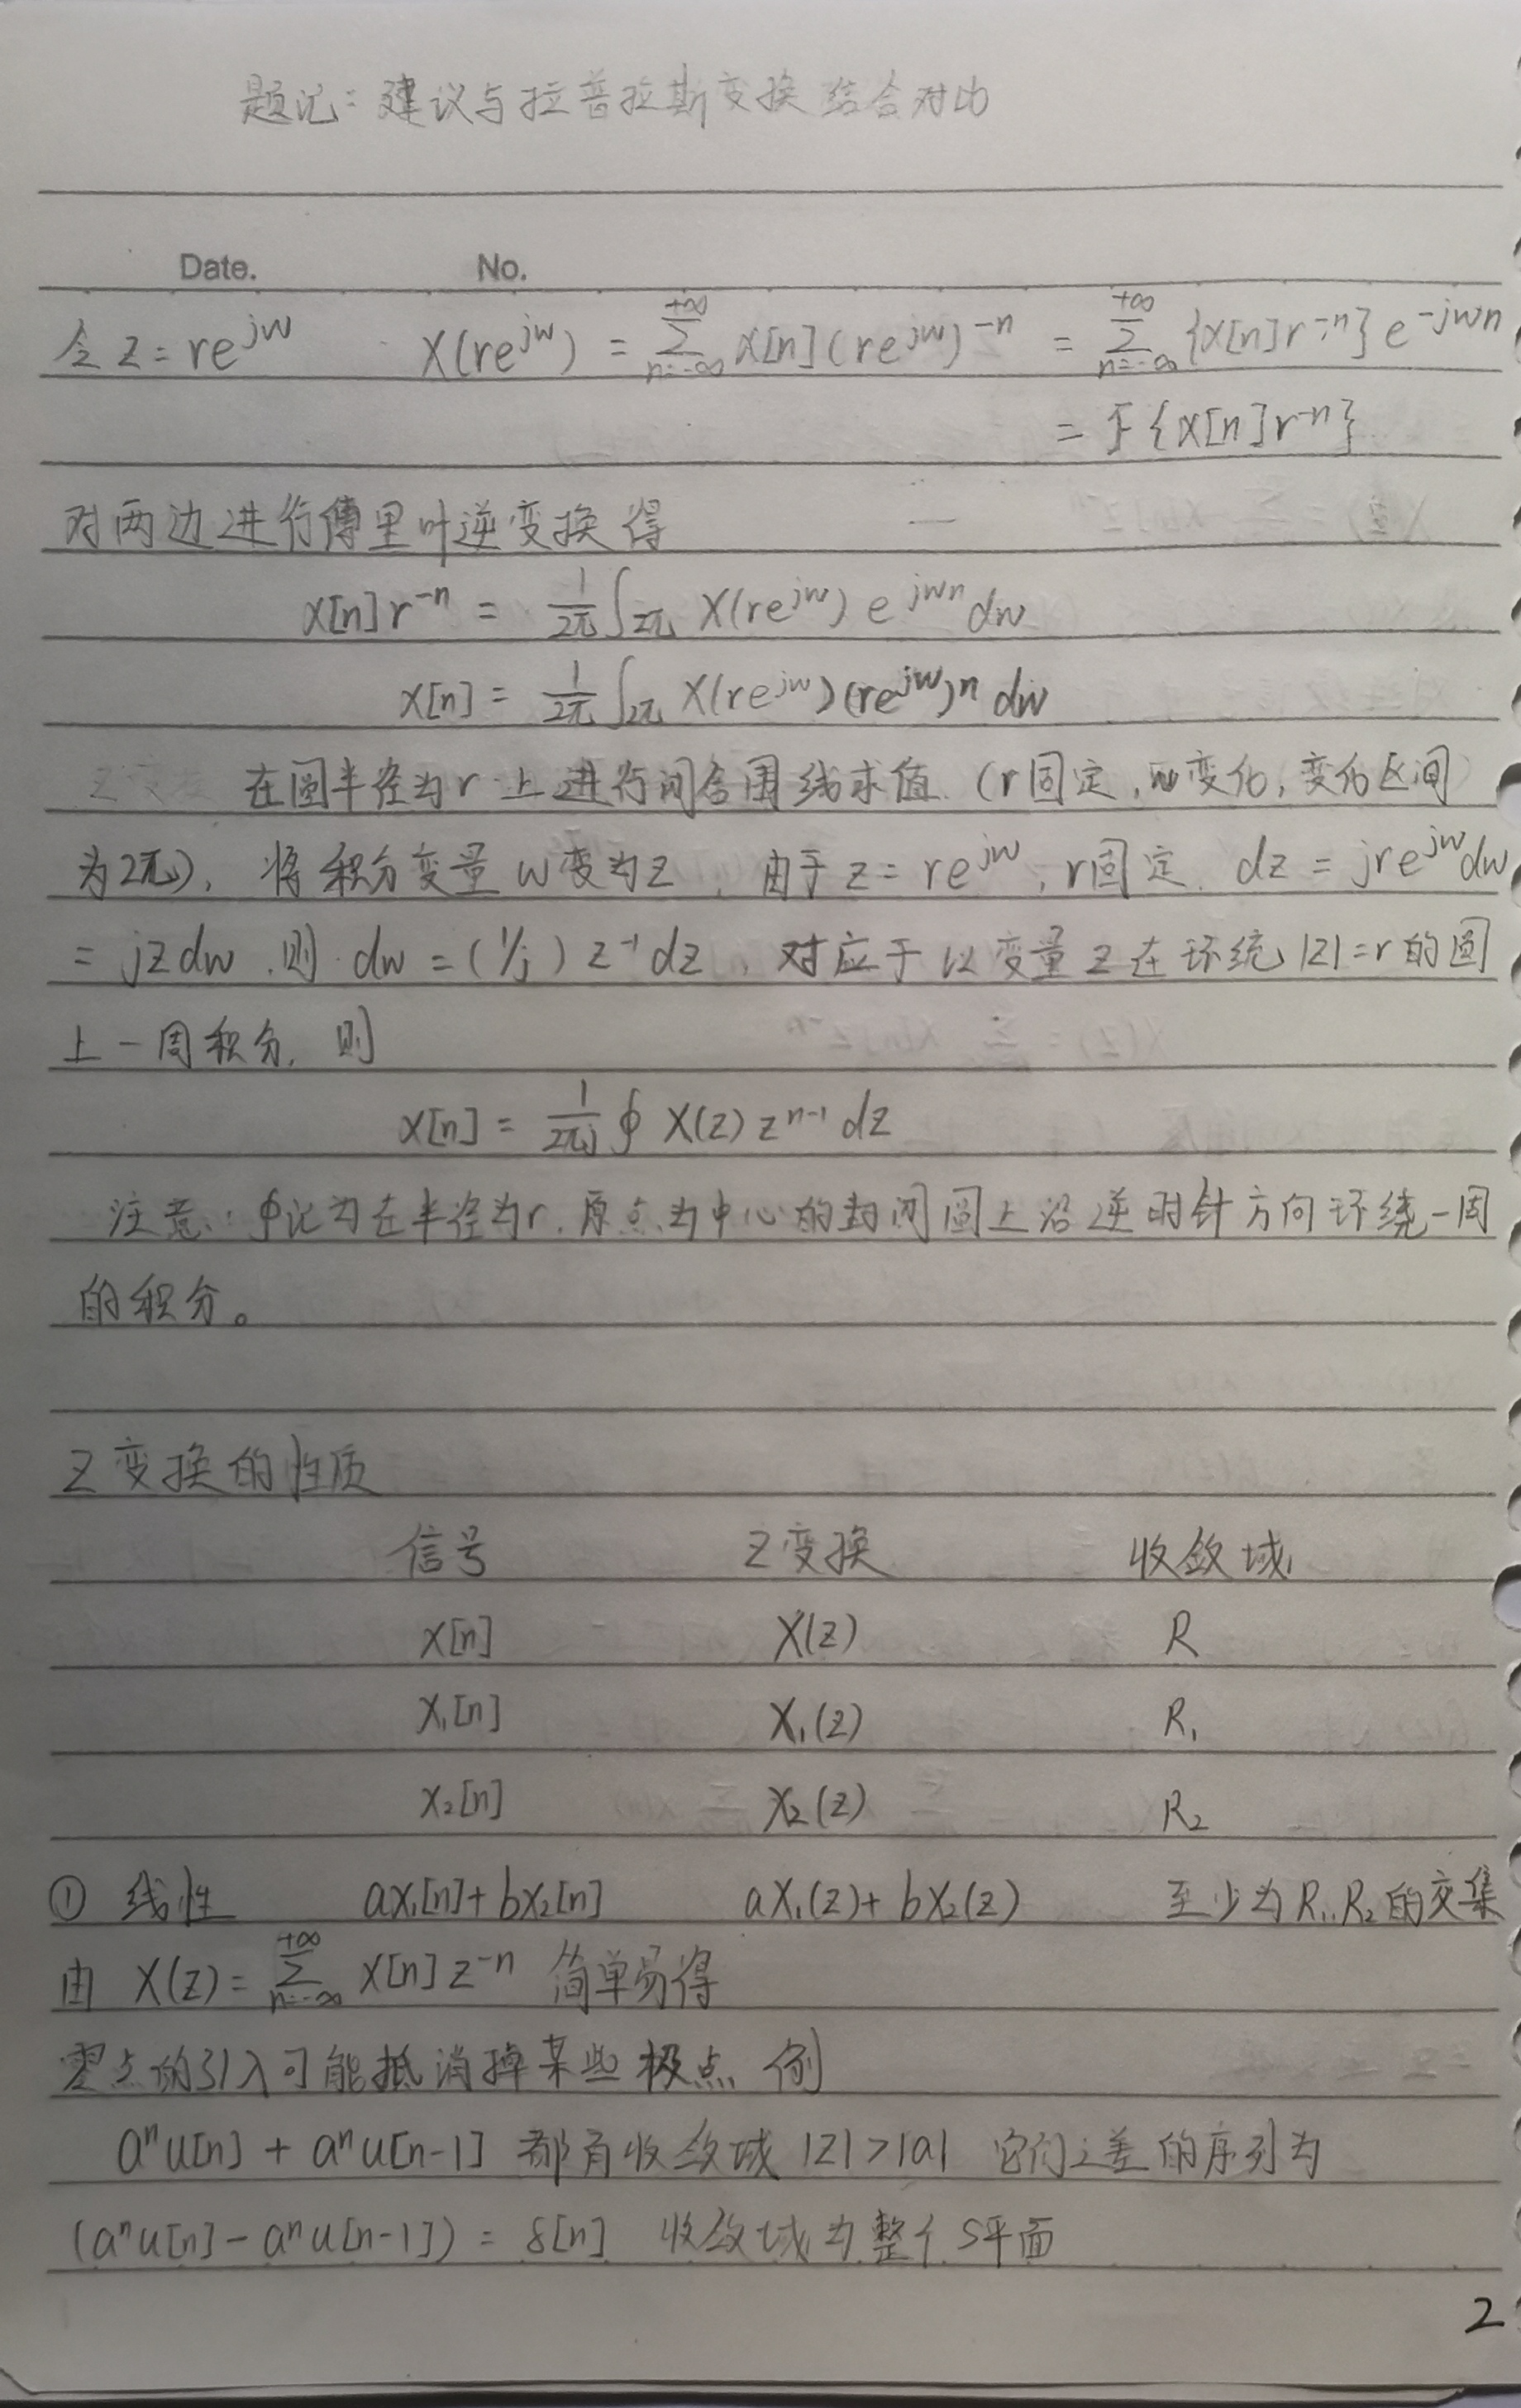 题记：建议与拉普拉斯变换结合对比
Date. No.
令 z = re^{jw} X(re^{jw}) = \sum_{n=-∞}^{+∞} x[n](re^{jw})^{-n} = \sum_{n=-∞}^{+∞} {x[n]r^{-n}} e^{-jwn}
= F{x[n]r^{-n}}
对两边进行傅里叶逆变换得
x[n]r^{-n} = \frac{1}{2π} ∫_{2π} X(re^{jw}) e^{jwn} dw
x[n] = \frac{1}{2π} ∫_{2π} X(re^{jw})(re^{jw})^n dw
在圆半径为r上进行闭合围线求值（r固定，w变化，变化区间
为2π），将积分变量w变为z，由于z = re^{jw}，r固定，dz = jre^{jw}dw
= jzdw，则 dw = (1/j) z^{-1} dz，对应于以变量z在环绕|z|=r的圆
上一周积分，则
x[n] = \frac{1}{2πj} ∮ X(z) z^{n-1} dz
注意：∮记为在半径为r，原点为中心的封闭圆上沿逆时针方向环绕一周
的积分。
Z变换的性质
信号 Z变换 收敛域
x[n] X(z) R
x₁[n] X₁(z) R₁
x₂[n] X₂(z) R₂
① 线性 ax₁[n]+bx₂[n] aX₁(z)+bX₂(z) 至少为R₁,R₂的交集
由 X(z) = \sum_{n=-∞}^{+∞} x[n] z^{-n} 简单易得
零点的引入可能抵消掉某些极点，例
a^n u[n] + a^n u[n-1] 都有收敛域 |z|>|a| 它们之差的序列为
(a^n u[n] - a^n u[n-1]) = δ[n] 收敛域为整个S平面
2